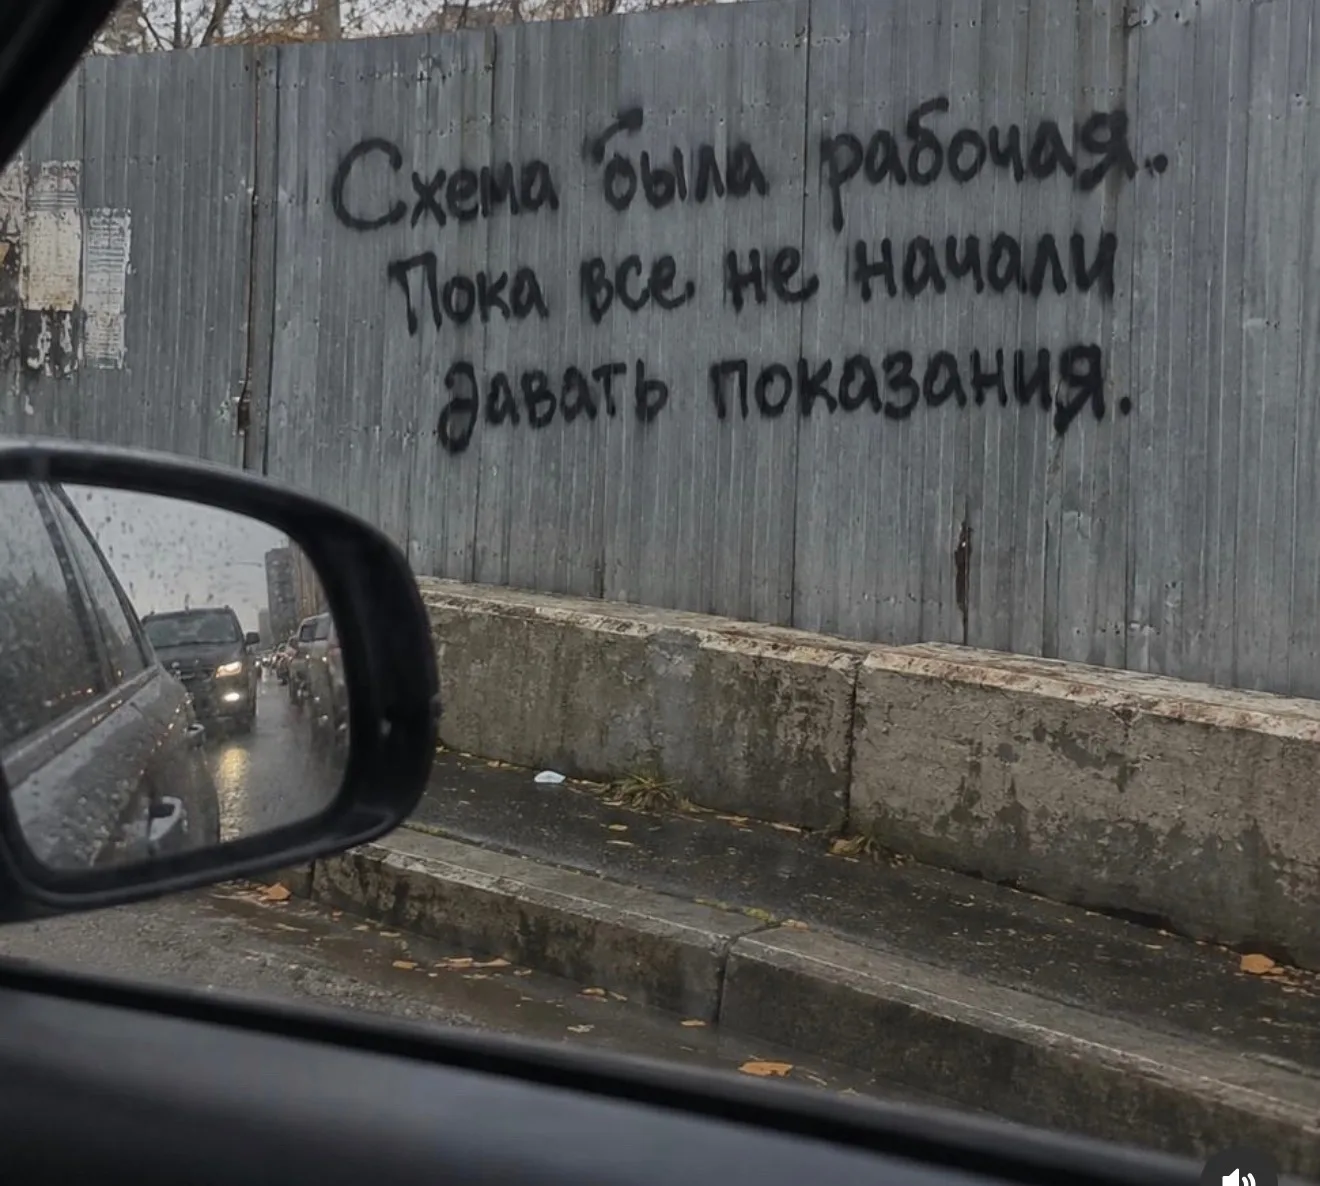 Схема была рабочая..
Пока все не начали
давать показания.